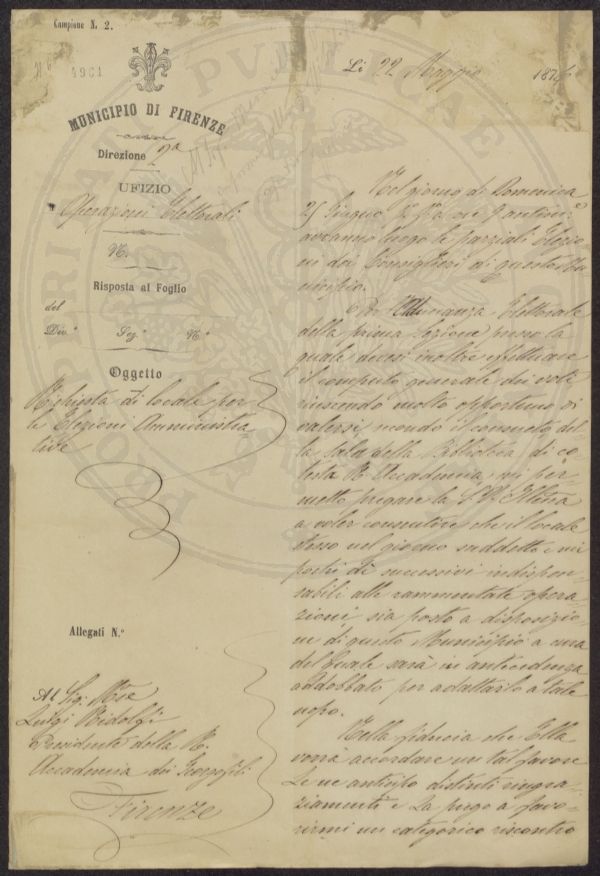 Campione N. 2.
4961
MUNICIPIO DI FIRENZE
Direzione 2ª
UFIZIO
Operazioni Elettorali
N.
Risposta al Foglio
del
Div.ª Sez.ª N.º
Oggetto
Richiesta di locale per
le Elezioni Amministra
tive
Allegati N.º
Al Sig. Mse
Luigi Ridolfi
Presidente della R.
Accademia dei Georgofili
Firenze
Li 22 Maggio 1876
Nel giorno di Domenica
25 Giugno ore 9 antim.e
avranno luogo le parziali Elezio
ni dei Consiglieri di questo Mu
nicipio.
Per l'Adunanza Elettorale
della prima Sezione presso la
quale devesi inoltre effettuare
il computo generale dei voti
riuscendo molto opportuno di
valersi secondo il consueto del
la Sala della Biblioteca di co
testa R. Accademia, mi per
metto pregare la S. V. Illma
a voler consentire che il locale
stesso nel giorno suddetto e nei
pochi di successivi indispen
sabili alle rammentate opera
zioni, sia posto a disposizio
ne di questo Municipio a cura
del quale sarà in antecedenza
addobbato per adattarlo a tale
uopo.
Nella fiducia che Ella
vorrà accordare un tal favore
Le ne anticipo distinti ringra
ziamenti e La prego a favo
rirmi un categorico riscontro
PRO PATRIAE PUBLICAE